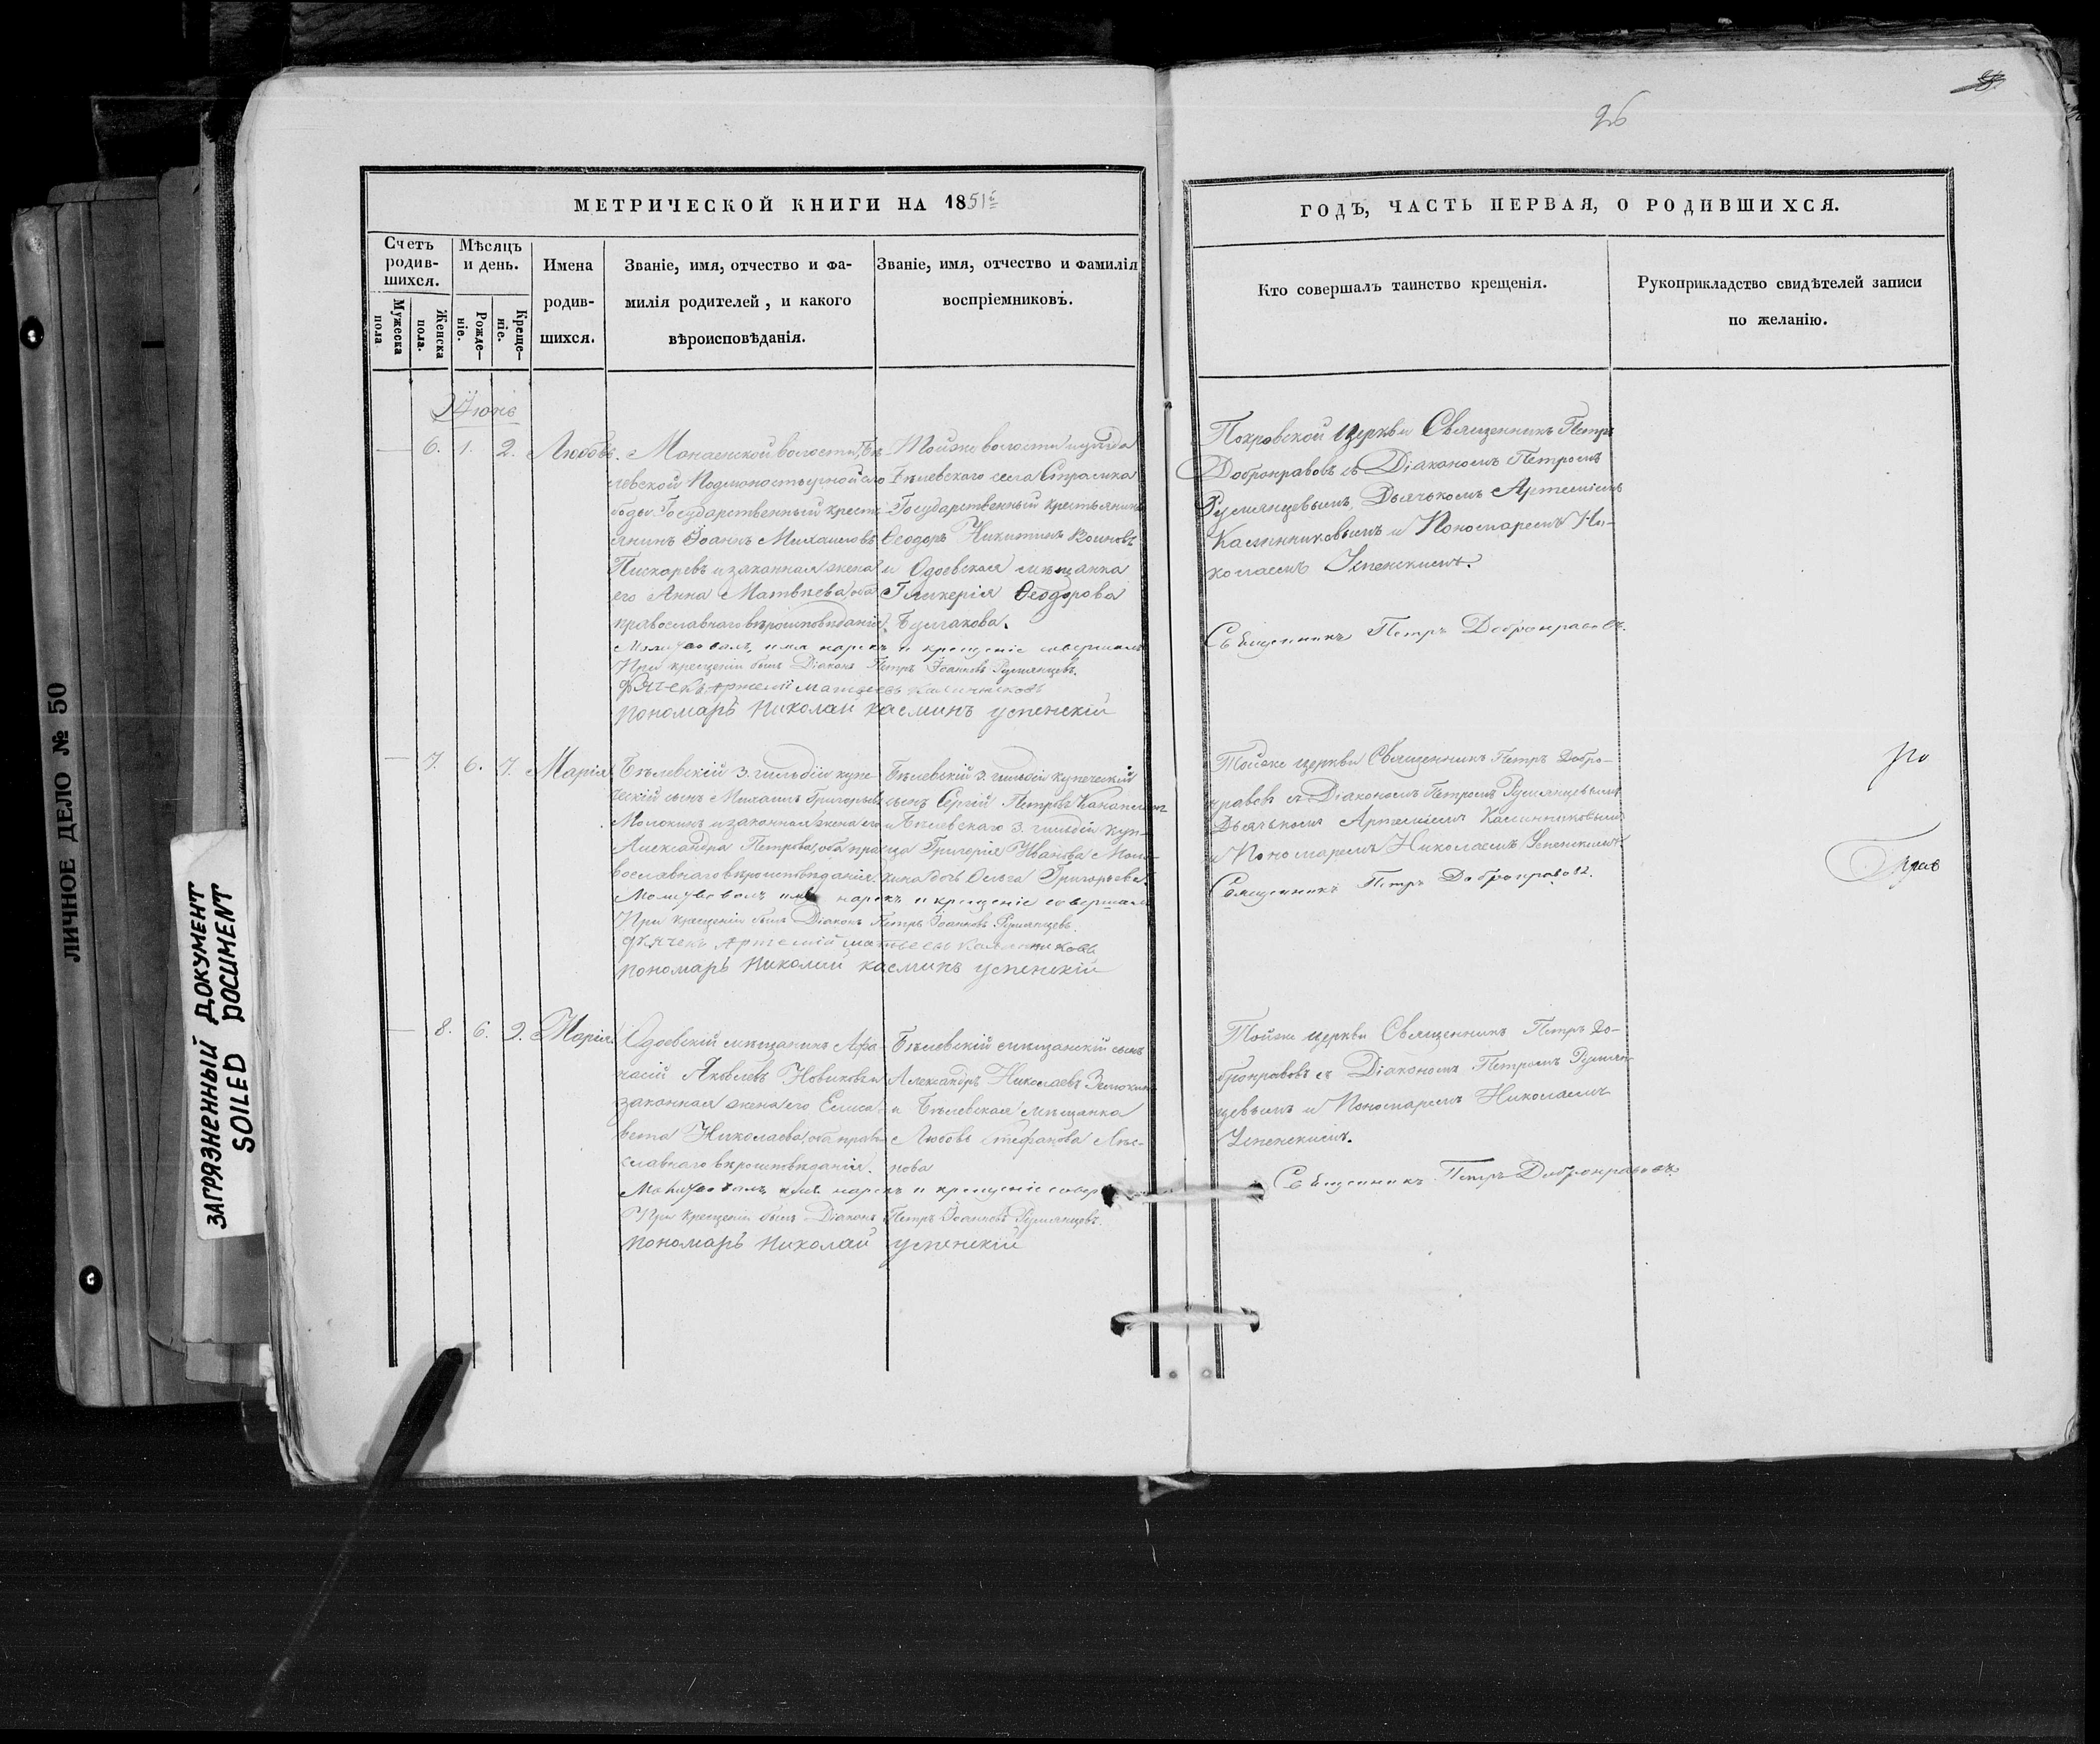 26
МЕТРИЧЕСКОЙ КНИГИ НА 1851й
ГОДЪ, ЧАСТЬ ПЕРВАЯ, О РОДИВШИХСЯ.
Счетъ родив-
шихся.
Мужеска пола
Женска пола.
Мѣсяцъ и день.
Рожде-
ніе.
Креще-
ніе.
Имена
родив-
шихся.
Званіе, имя, отчество и фа-
милія родителей, и какого
вѣроисповѣданія.
Званіе, имя, отчество и фамилія
воспріемниковъ.
Кто совершалъ таинство крещенія.
Рукоприкладство свидѣтелей записи
по желанію.
Іюнь
6. 1. 2. Любовь.
Монаенской волости, Бѣ-
левской Подмонастырной сло
боды Государственный кресть
янинъ Іоаннъ Михаиловъ
Пискаревъ и законная жена
его Анна Матвѣева оба
православнаго вѣроисповѣданія.
Тойже волости и уѣзда
Бѣлевскаго села
Государственный крестьянинъ
Ѳеодоръ Никитинъ
и Одоевская мѣщанка
Гликерія Ѳеодорова
Булгакова.
Молитвовалъ, имя нарекъ и крещеніе совершалъ
При крещеніи былъ Діаконъ Петръ Іоанновъ Румянцевъ.
Дячекъ Артемій Матвеевъ Калинниковъ
Пономарь Николай Касминъ Успенскій
Покровской Церкви Священникъ Петръ
Добронравовъ съ Діакономъ Петромъ
Румянцевымъ, Дьячькомъ Артеміемъ
Калинниковымъ и Пономаремъ Ни-
колаемъ Успенскимъ.
Священникъ Петръ Добронравовъ.
7. 6. 7. Марія
Бѣлевскій 3. гильдіи купе
ческій сынъ Михаилъ Григорьевъ
Молокинъ и законная жена его
Александра Петрова, оба пра-
вославнаго вѣроисповѣданія.
Бѣлевскій 3. гильдіи купеческій
сынъ Сергій Петровъ
и Бѣлевскаго 3. гильдіи куп-
ца Григорія Иванова Моло-
кина дочь Ольга Григорьева.
Молитвовалъ имя нарекъ и крещеніе совершалъ
При крещеніи былъ Діаконъ Петръ Іоанновъ Румянцевъ.
Дячекъ Артемій Матвеевъ Калинниковъ
Пономарь Николай Касминъ Успенскій
Тойже церкви Священникъ Петръ Добро-
нравовъ съ Діакономъ Петромъ Румянцевымъ
Дьячькомъ Артеміемъ Калинниковымъ
и Пономаремъ Николаемъ Успенскимъ.
Священникъ Петръ Добронравовъ.
8. 6. 9. Марія.
Одоевскій мѣщанинъ Афа-
насій Яковлевъ Новиковъ и
законная жена его Елиса-
вета Николаева, оба право
славнаго вѣроисповѣданія.
Бѣлевскій мѣщанскій сынъ
Александръ Николаевъ
и Бѣлевская мѣщанка
Любовь Стефанова
Молитвовалъ, имя нарекъ и крещеніе совер
При крещеніи былъ Діаконъ Петръ Іоанновъ Румянцевъ.
Пономарь Николай Успенскій
Тойже церкви Священникъ Петръ До-
бронравовъ съ Діакономъ Петромъ Румян-
цевымъ и Пономаремъ Николаемъ
Успенскимъ.
Священникъ Петръ Добронравовъ.
ЛИЧНОЕ ДЕЛО № 50
ЗАГРЯЗНЕННЫЙ ДОКУМЕНТ
SOILED DOCUMENT